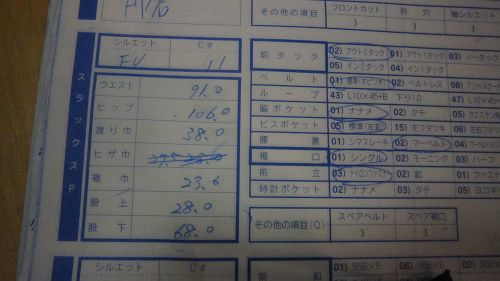 その他の項目 フロントカット 袖シルエット
シルエット C#
FU 11
スラックスP
ウエスト 91.0
ヒップ 106.0
渡り巾 38.0
ヒザ巾
裾巾 23.6
股上 28.0
股下 68.0
前タック 02) アウト2タック 01) アウト1タック 03) ノータック
05) イン2タック 04) イン1タック
ベルト 01) 標準 02) ベルトレス
ループ 43) L10×45+B 下り1.0 47) L10×45
脇ポケット 01) ナナメ 02) タテ
ピスポケット 05) 標準(左釦) 15) 左フタツキ 06)
腰裏 01) シマスレーキ 02) マーベルト 04)
裾口 01) シングル 02) モーニング 03) ハーフ
前立 03) ナイロンファスナー 02) 釦 01)
時計ポケット 02) ナナメ 03) タテ 05)
その他の項目(Q) スペアベルト スペア裾口
シルエット C#
前釦 01) S6B×5 06) S6B×6